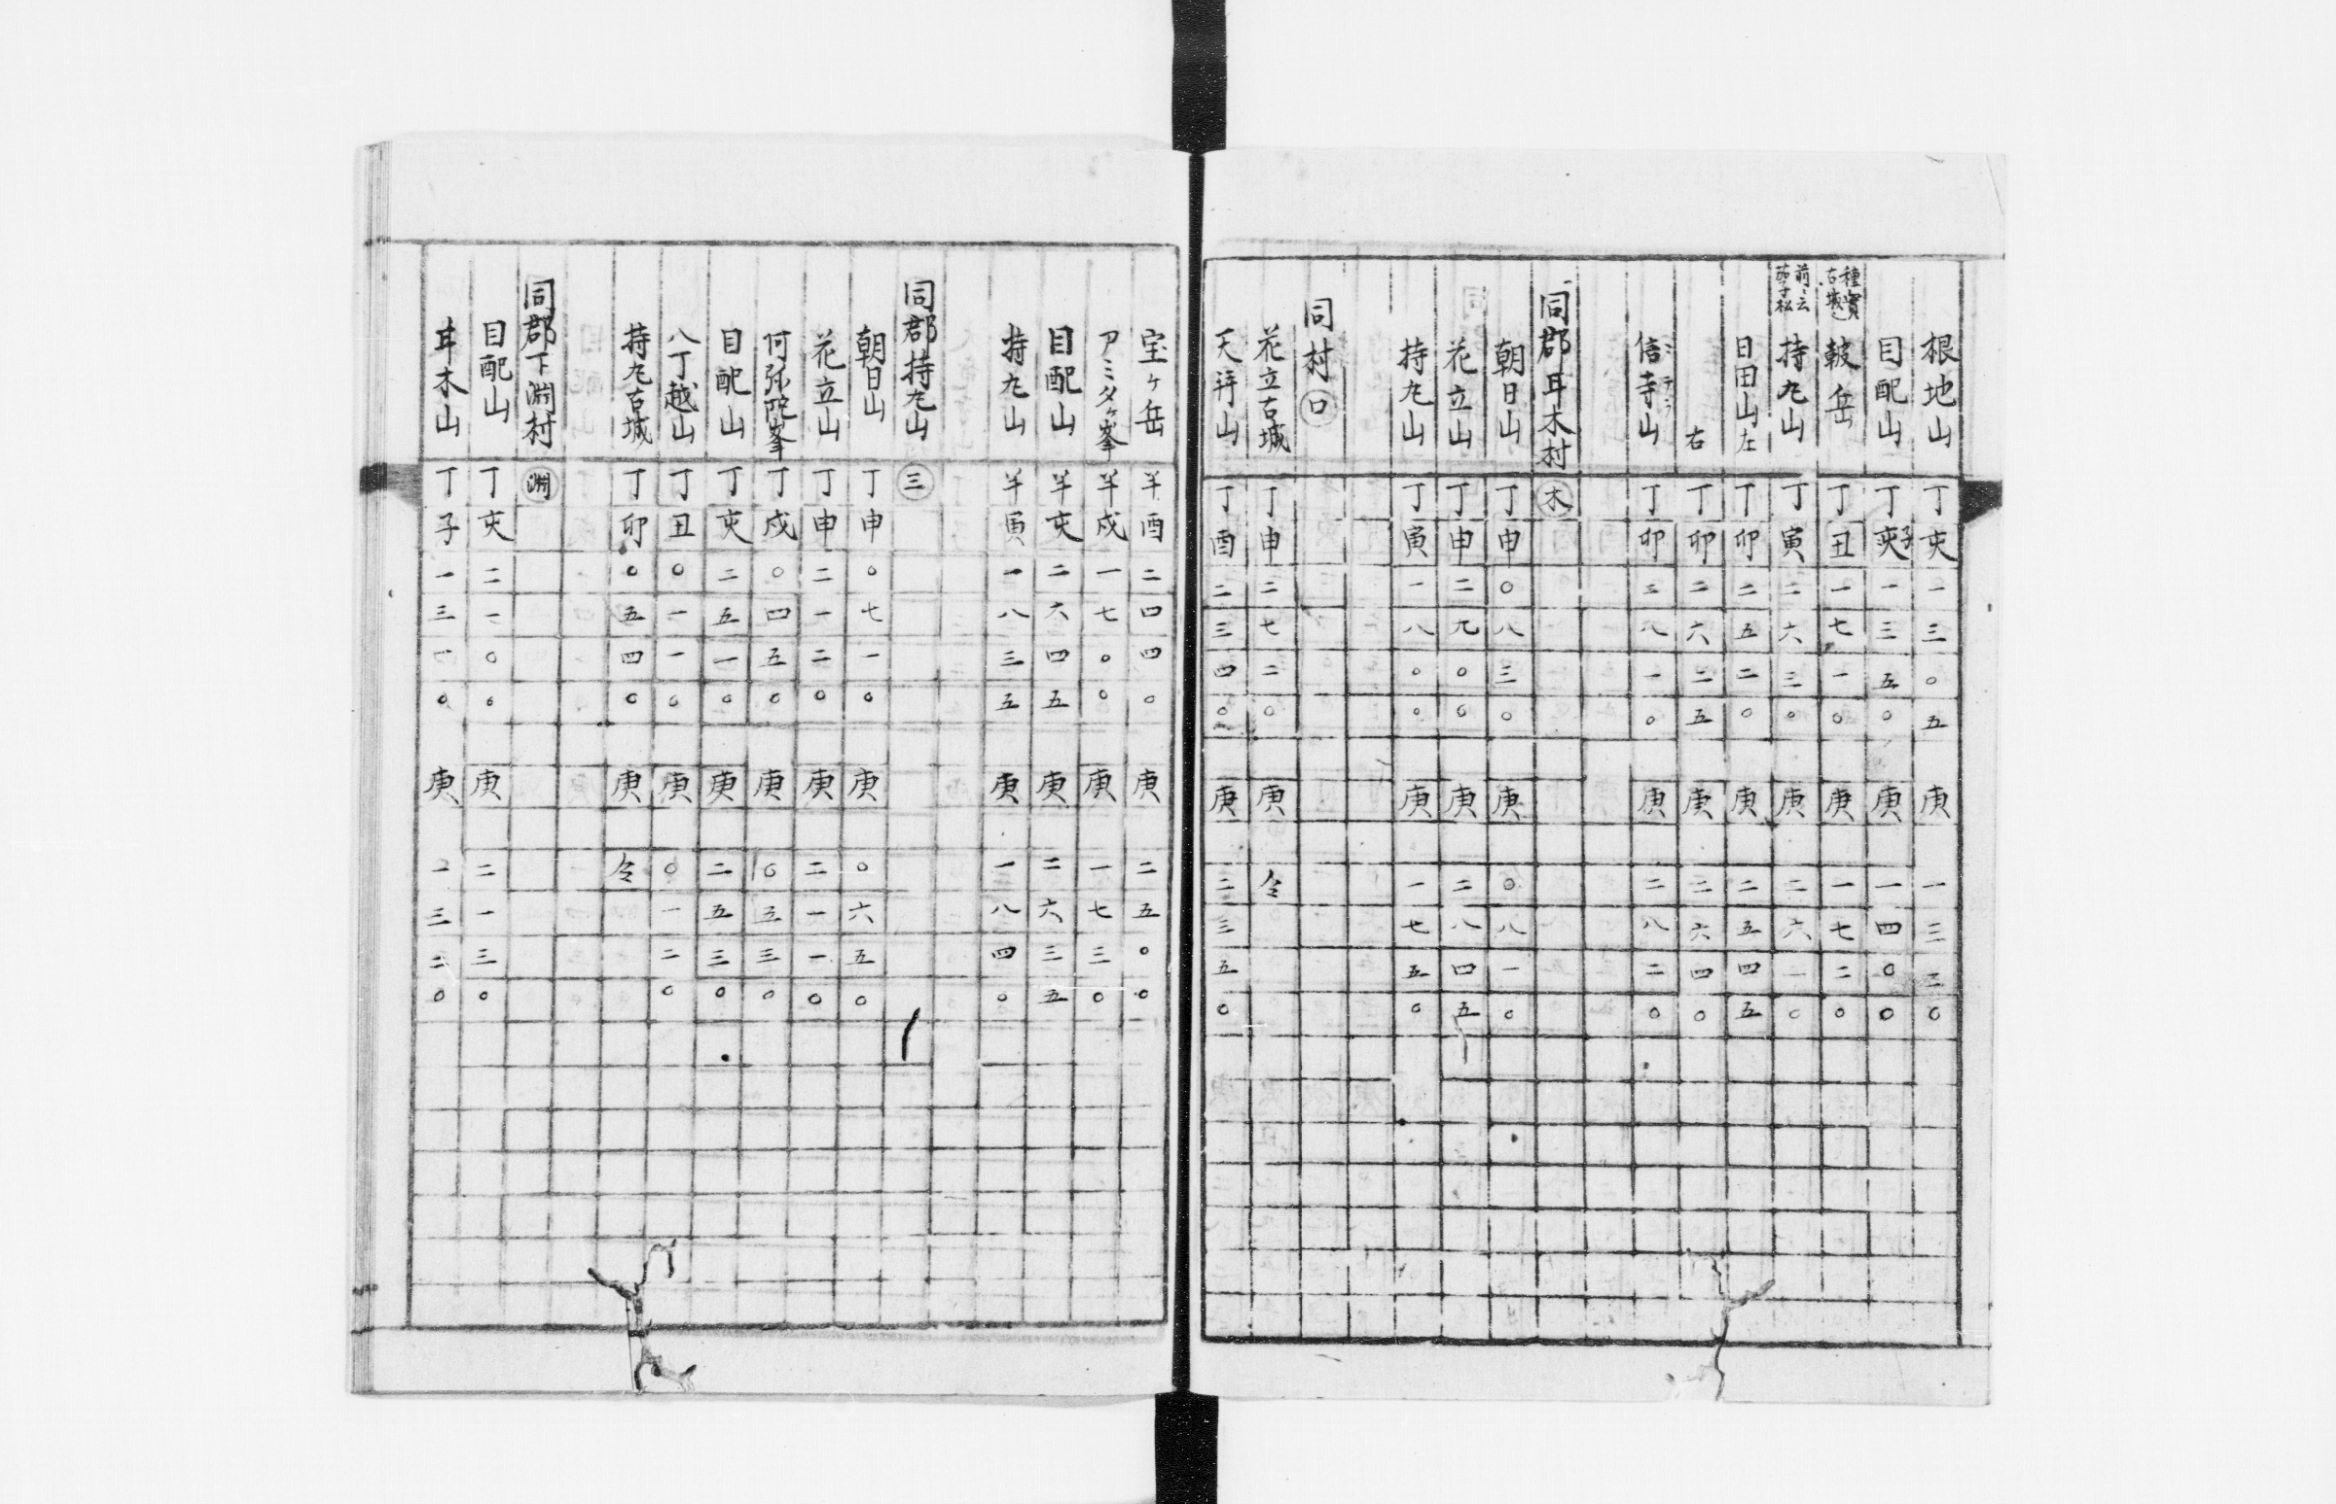 根地山 丁亥 一三〇五 庚 一三三〇
目配山 丁亥 子 一三五〇 庚 一四〇〇
種實古城 皷岳 丁丑 一七一〇 庚 一七二〇
前ニ云 持丸山 丁寅 二六三〇 庚 二六一〇
日田山左 丁卯 二五二〇 庚 二五四五
右 丁卯 二六二五 庚 二六四〇
信寺山 丁卯 二八一〇 庚 二八二〇
同郡耳木村 木
朝日山 丁申 〇八三〇 庚 〇八一〇
花立山 丁申 二九〇〇 庚 二八四五
持丸山 丁寅 一八〇〇 庚 一七五〇
同村 口
花立古城 丁申 二七二〇 庚 仝
天拝山 丁酉 二三四〇 庚 二三五〇
宝ヶ岳 羊酉 二四四〇 庚 二五〇〇
アミダヶ峯 羊戌 一七〇〇 庚 一七三〇
目配山 羊亥 二六四五 庚 二六三五
持丸山 羊寅 一八三五 庚 一八四〇
同郡持丸山 三
朝日山 丁申 〇七一〇 庚 〇六五〇
花立山 丁申 二一二〇 庚 二一一〇
何弥陀峯 丁戌 〇四五〇 庚 〇五三〇
目配山 丁亥 二五一〇 庚 二五三〇
八丁越山 丁丑 〇一一〇 庚 〇一二〇
持丸古城 丁卯 〇五四〇 庚 仝
同郡下渕村 渕
目配山 丁亥 二一〇〇 庚 二一三〇
耳木山 丁子 一三一〇 庚 一三二〇